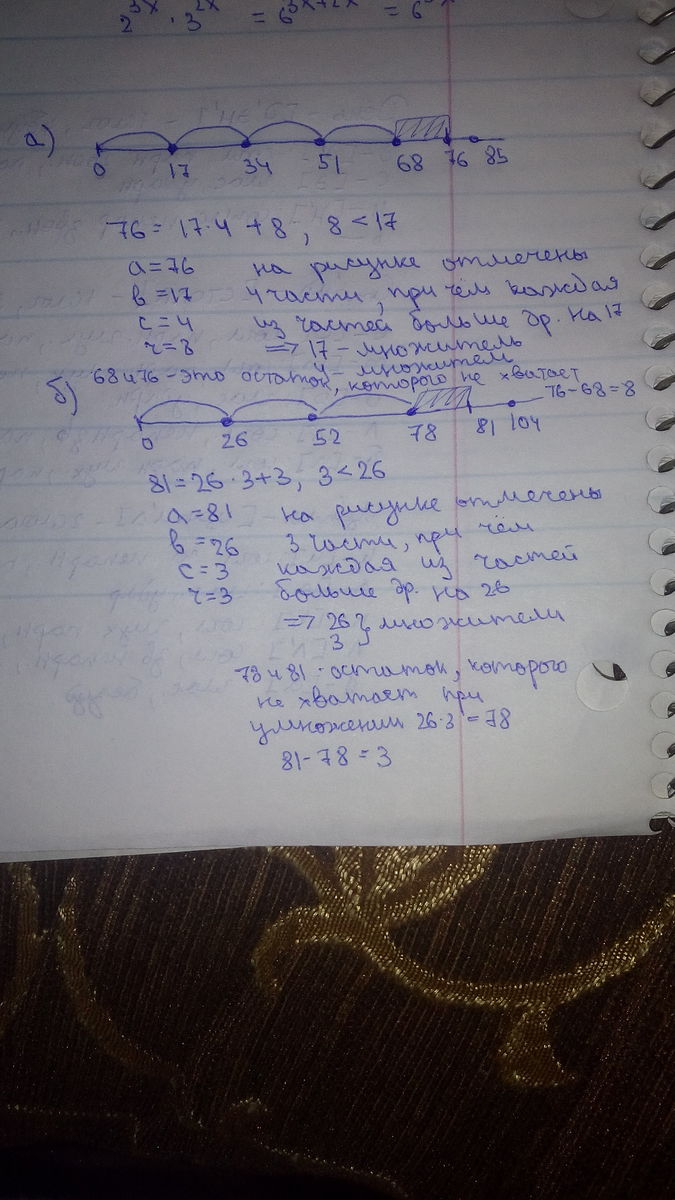 2^{3x} · 3^{2x} = 6^{3x+2x} = 6
а)
0 17 34 51 68 76 85
76 = 17·4 + 8, 8 < 17
a=76 на рисунке отмечены
в=17 4 части, при чём каждая
c=4 из частей больше др. на 17
r=8 => 17 - множитель
4 - множитель
68 и 76 - это остаток, которого не хватает
76-68=8
б)
0 26 52 78 81 104
81=26·3+3, 3<26
a=81 на рисунке отмечены
в=26 3 части, при чём
c=3 каждая из частей
r=3 больше др. на 26
=> 26 } множители
3
78 и 81 - остаток, которого
не хватает при
умножении 26·3=78
81-78=3